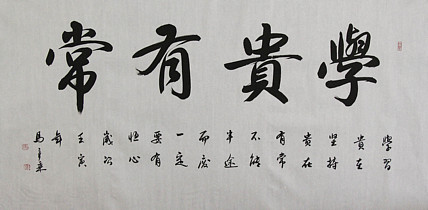 學貴有常
學習
貴在
堅持
貴在
有常
不能
半途
而廢
一定
要有
恒心
歲次
壬寅
年